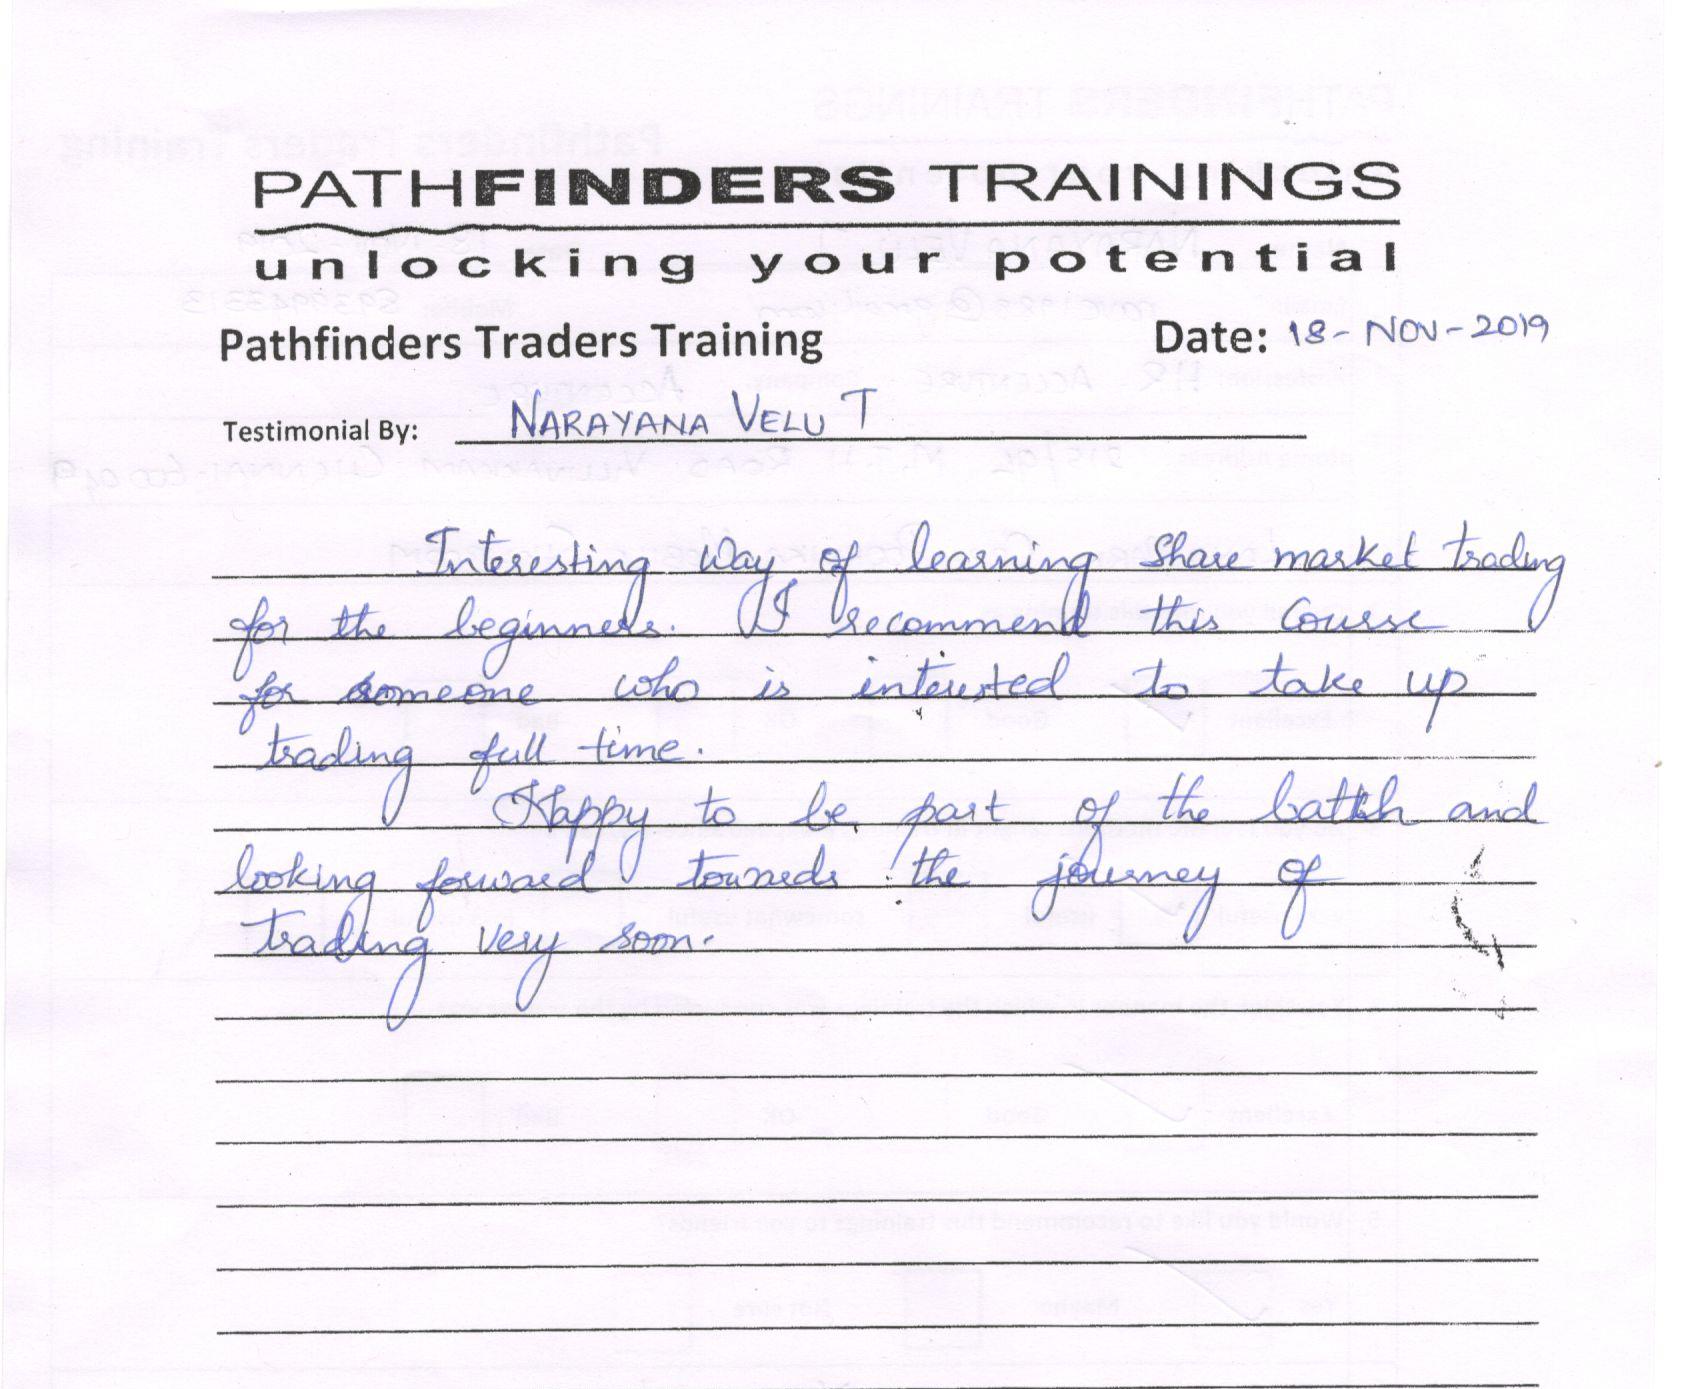 PATHFINDERS TRAININGS
unlocking your potential
Pathfinders Traders Training Date: 18-NOV-2019
Testimonial By: NARAYANA VELU T
Interesting way of learning Share market trading
for the beginners. I recommend this Course
for someone who is interested to take up
trading full time.
Happy to be part of the batch and
looking forward towards the journey of
trading very soon.